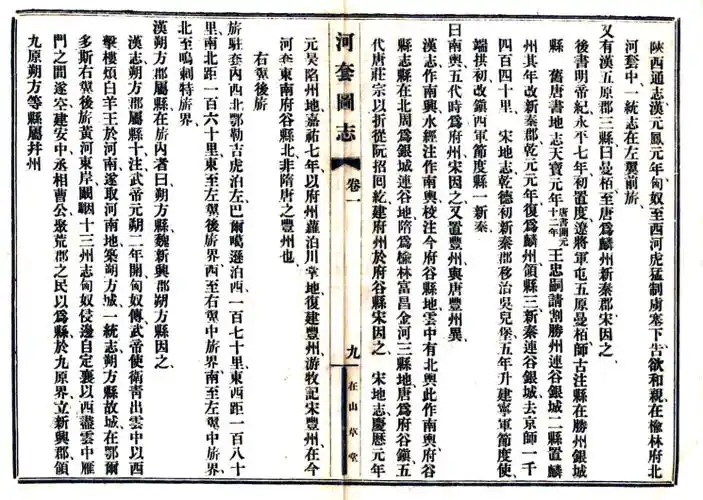 陝西通志漢元鳳元年匈奴至西河虎猛制虜塞下告欲和親在榆林府北
河套中一統志在左翼前旂
又有漢五原郡三縣曰曼栢至唐爲麟州新秦郡宋因之
後書明帝紀永平七年初置度遼將軍屯五原曼栢師古注縣在勝州銀城
縣 舊唐書地志天寶元年唐書開元十二年王忠嗣請割勝州連谷銀城二縣置麟
州其年改新秦郡乾元元年復爲麟州領縣三新秦連谷銀城去京師一千
四百四十里 宋地志乾德初新秦郡移治吳兒堡五年升建寧軍節度使
端拱初改鎮西軍節度縣一新秦
曰南輿五代時爲府州宋因之又置豐州與唐豐州異
漢志作南輿水經注作南輿校注今府谷縣地雲中有北輿此作南輿府谷
縣志縣在北周爲銀城連谷地隋爲榆林富昌金河三縣地唐爲府谷鎮五
代唐莊宗以折從阮招回紇建府州於府谷縣宋因之 宋地志慶歷元年
河套圖志
卷一
九
在山草堂
元昊陷州地嘉祐七年以府州蘿泊川掌地復建豐州游牧記宋豐州在今
河套東南府谷縣北非隋唐之豐州也
右翼後旂
旂駐套內西北鄂勒吉虎泊左巴爾噶遜泊西一百七十里東西距一百八十
里南北距一百六十里東至左翼後旂界西至右翼中旂界南至左翼中旂界
北至鳴剌特旂界
漢朔方郡屬縣在旂內者曰朔方縣魏新興郡朔方縣因之
漢志朔方郡屬縣十注武帝元朔二年開匈奴傳武帝使衛青出雲中以西
擊樓煩白羊王於河南遂取河南地築朔方城一統志朔方縣故城在鄂爾
多斯右翼後旂黃河東岸闞駰十三州志匈奴侵邊自定襄以西盡雲中雁
門之間遂空建安中丞相曹公聚荒郡之民以爲縣於九原界立新興郡領
九原朔方等縣屬幷州